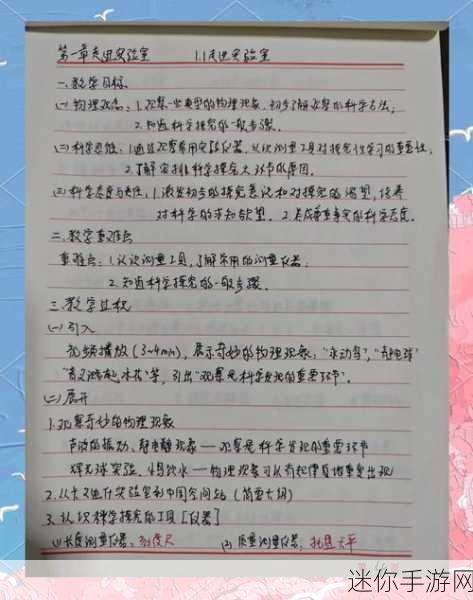 第一章走进实验室 1.1走进实验室
一、教学目标
(一)物理观念：1.观察一些典型的物理现象，初步了解的科学方法；
2.知道科学探究的一般步骤。
(二)科学思维：1.通过观察常用实验仪器，认识测量工具对探究性学习的重要性，
2.了解安排科学探究环节的原因。
(三)科学态度与责任：1.激发初步的探究意识和对探究的渴望，培养
对科学的求知欲望。2.养成尊重事实的科学态度。
二、教学重难点
重难点：1.认识测量工具，了解常用的测量仪器；
2.知道科学探究的一般步骤。
三、教学过程
(一)引入
视频播放(3~4min)，展示奇妙的物理现象："永动鸟"，"静电球"
等，引出"观察是科学发现的重要环节"。
(二)展开
1.观察奇妙的物理现象
声波的振动、静电现象——观察是科学发现的重要环节
辉光球实验、饮水——物理现象可以有规律重复出现
2.从实验室到中国空间站(简要介绍)
3.认识科学探究的工具[仪器]
(1)长度测量仪器：刻度尺 (2)质量测量仪器：托盘天平
迷你手游网